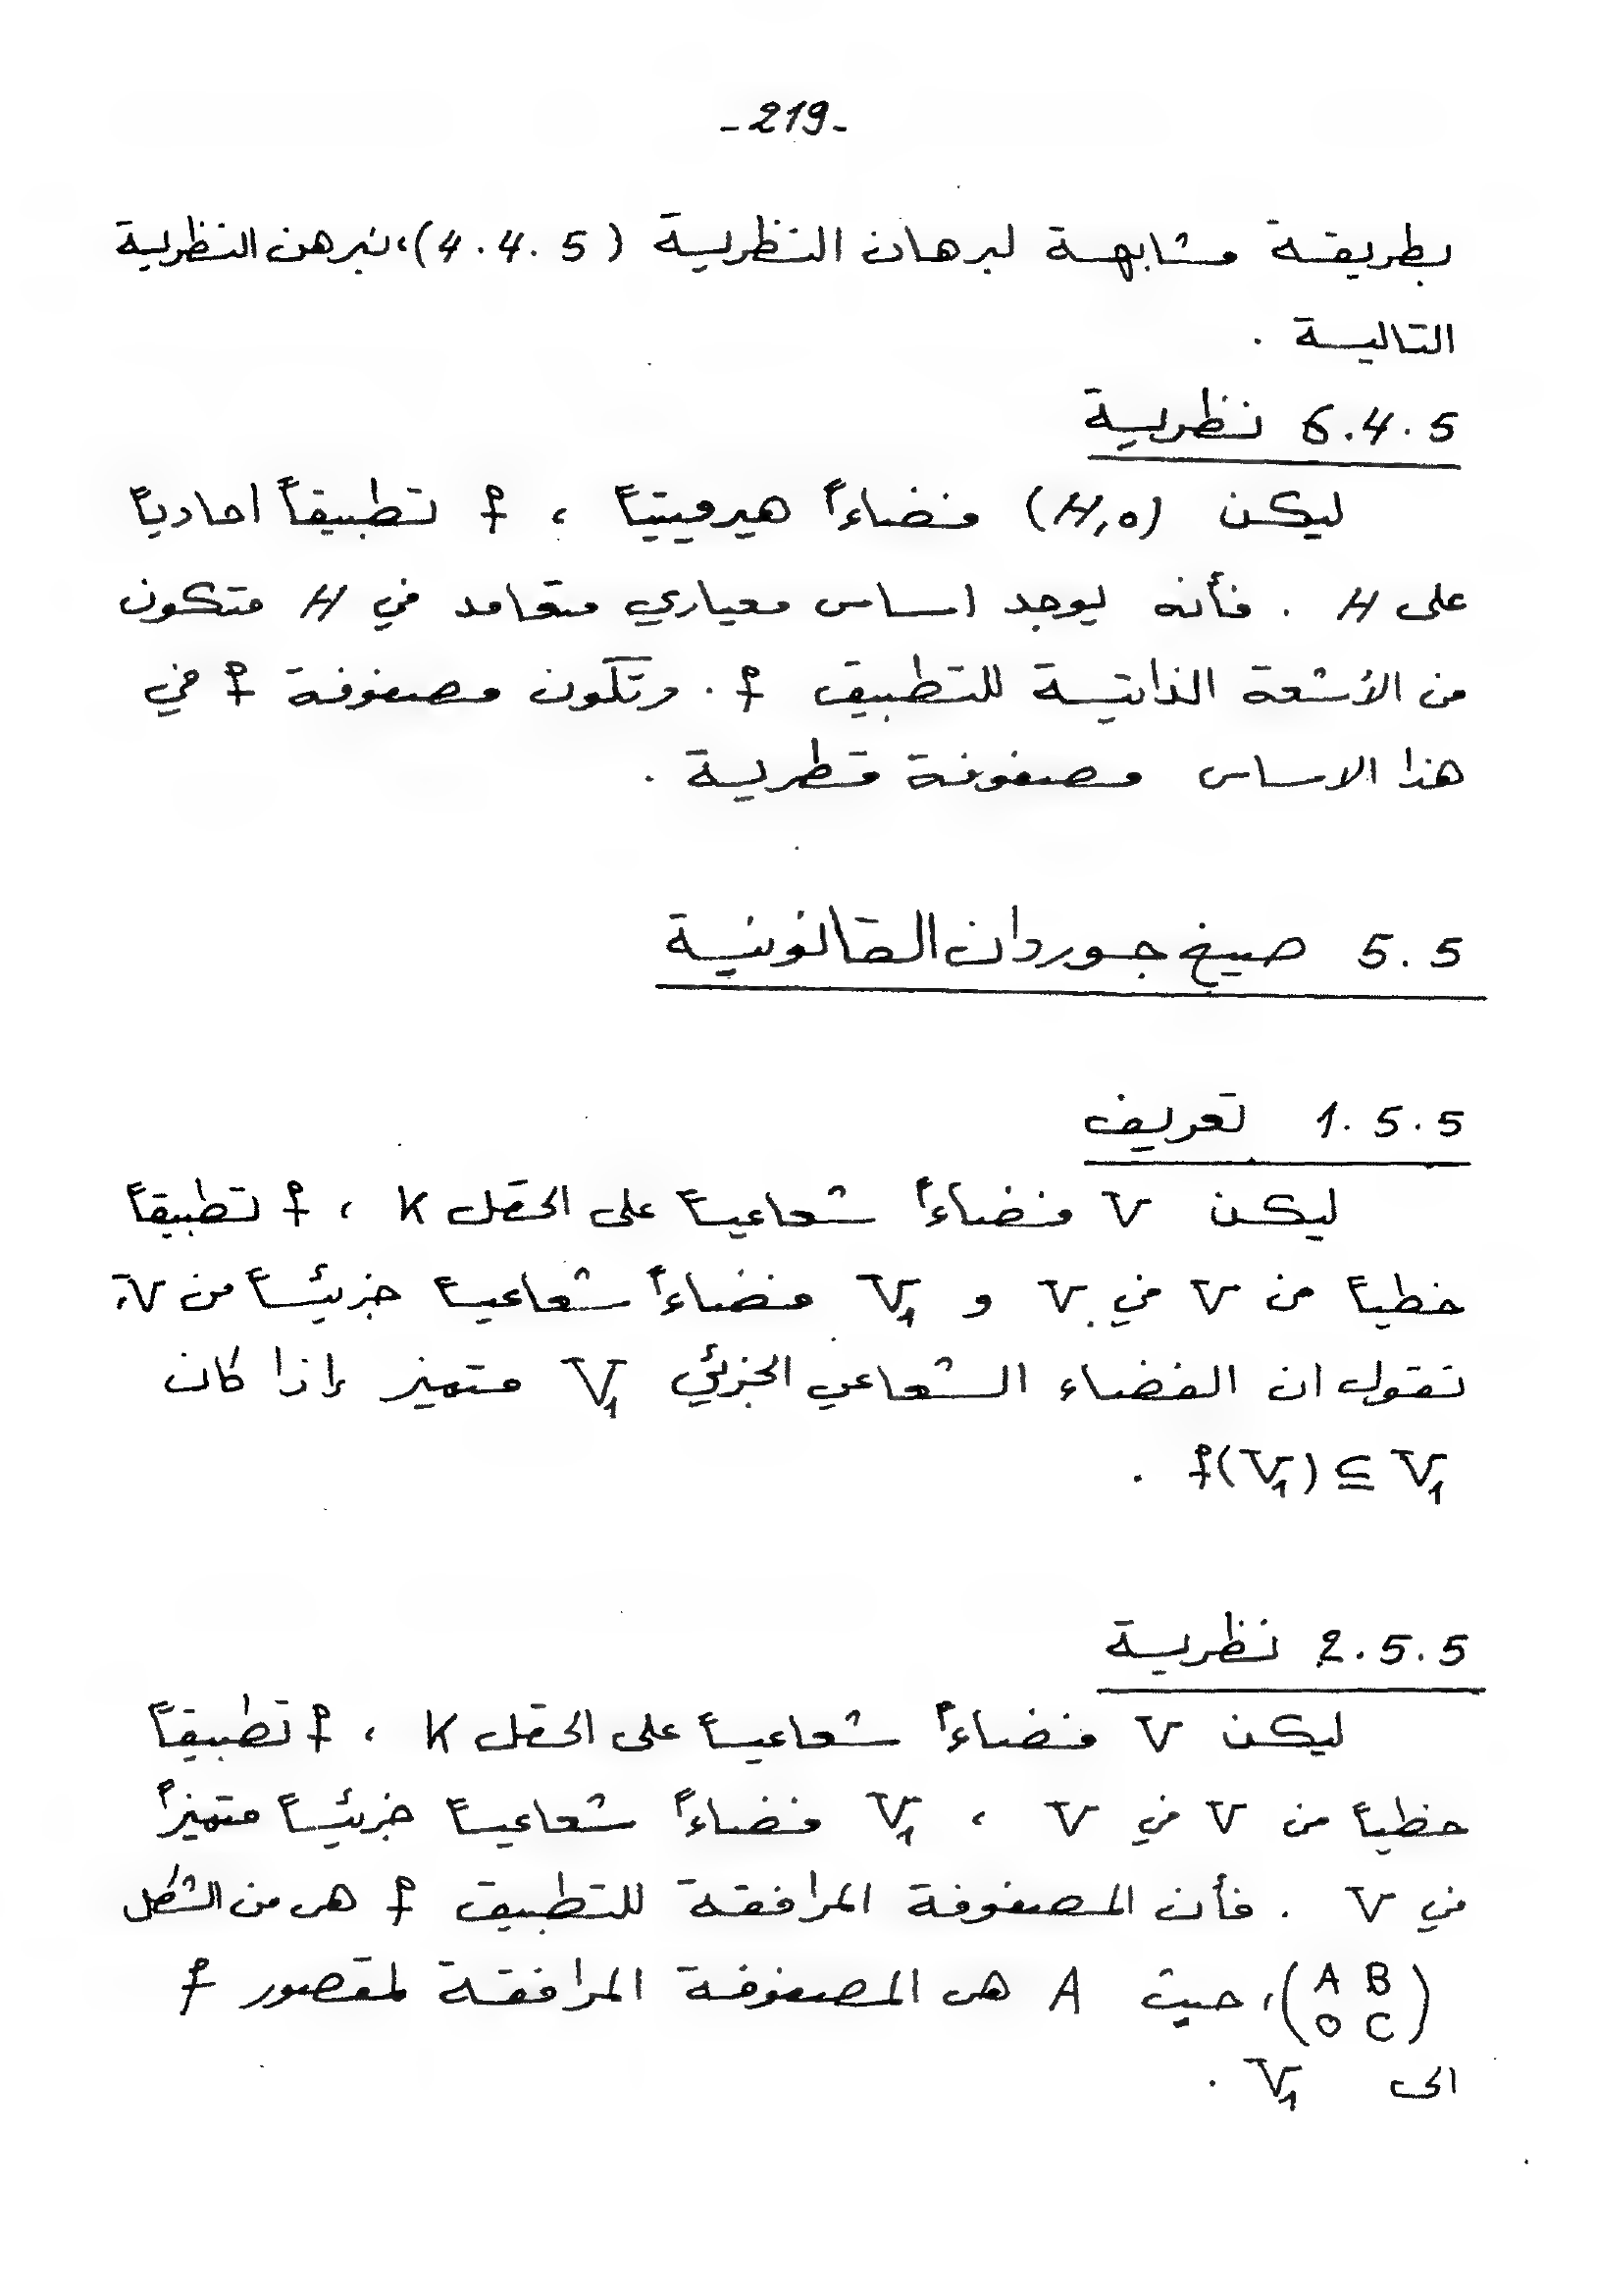 -219-
بطريقة مشابهة لبرهان النظرية (4.4.5)، نبرهن النظرية
التالية .
6.4.5 نظرية
ليكن (H,o) فضاءً هيرميتياً ، f تطبيقاً احادياً
على H . فأنه يوجد اساس معياري متعامد في H متكون
من الأشعة الذاتية للتطبيق f . وتكون مصفوفة f في
هذا الاساس مصفوفة قطرية .
5.5 صيغ جوردان القانونية
1.5.5 تعريف
ليكن V فضاءً شعاعياً على الحقل K ، f تطبيقاً
خطياً من V في V و V₁ فضاءً شعاعياً جزئياً من V،
نقول ان الفضاء الشعاعي الجزئي V₁ متميز إذا كان
f(V₁) ⊆ V₁ .
2.5.5 نظرية
ليكن V فضاءً شعاعياً على الحقل K ، f تطبيقاً
خطياً من V في V ، V₁ فضاءً شعاعياً جزئياً متميزاً
في V . فأن المصفوفة المرافقة للتطبيق f هي من الشكل
(A B
0 C)، حيث A هي المصفوفة المرافقة لمقصور f
الى V₁ .